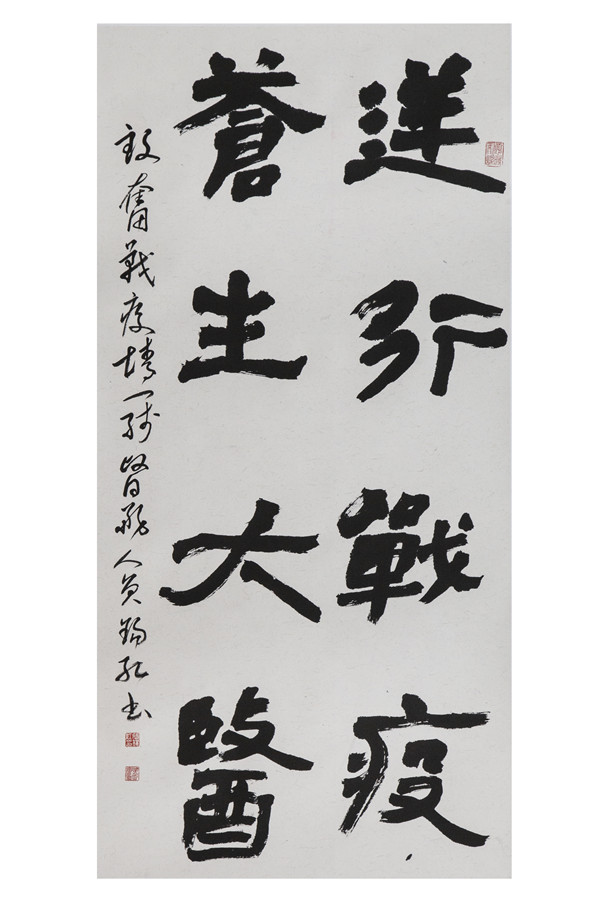 逆行戰疫
蒼生大醫
致奮戰疫情一線醫務人員錫紅書